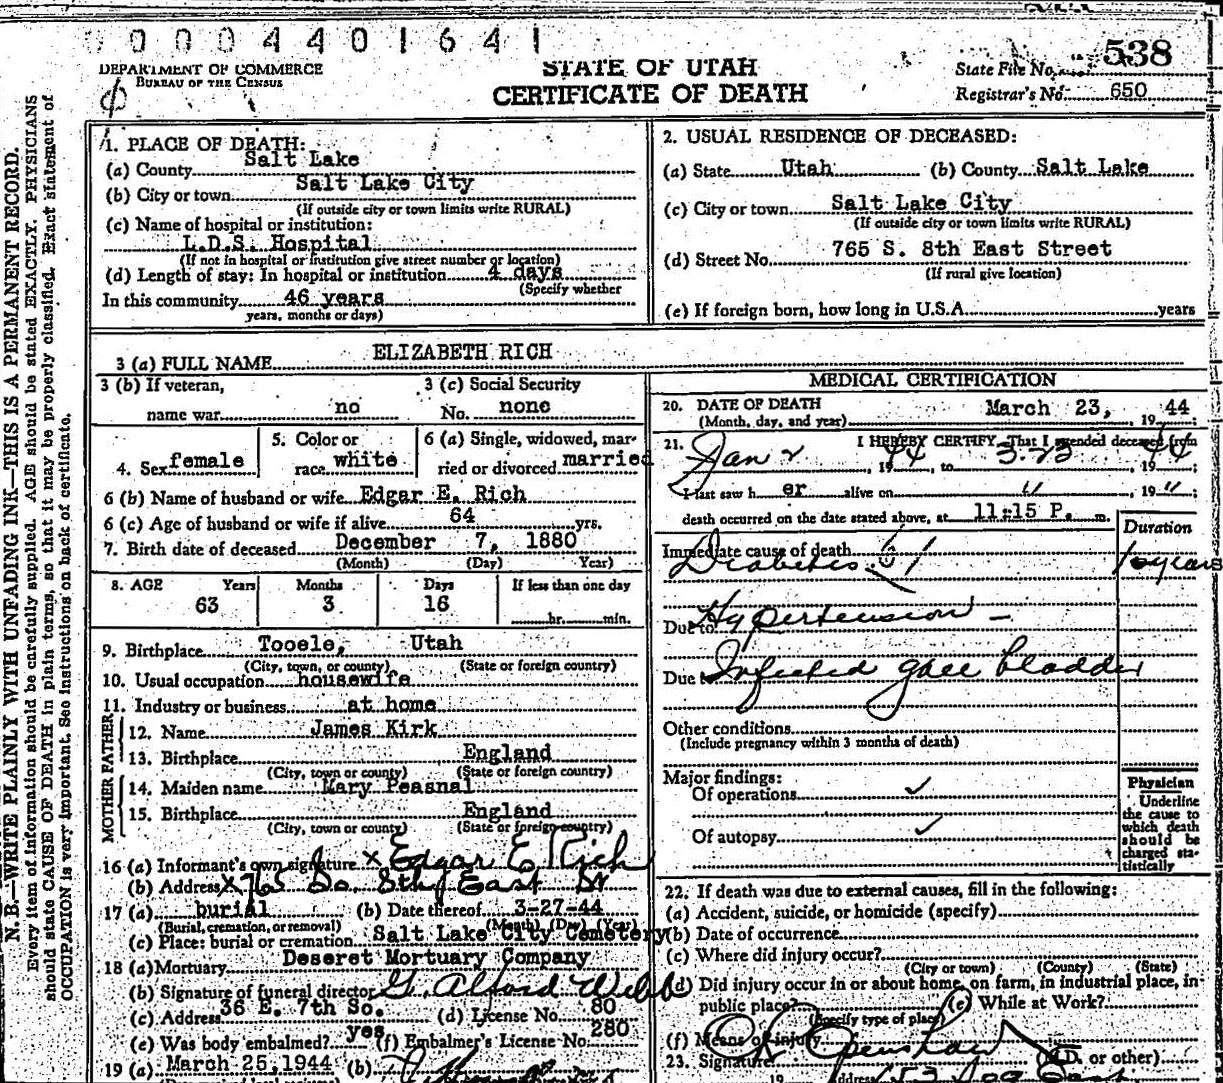 0 0 0 0 4 4 0 1 6 4 1
DEPARTMENT OF COMMERCE
BUREAU OF THE CENSUS
STATE OF UTAH
CERTIFICATE OF DEATH
State File No. 538
Registrar's No. 650
N. B.—WRITE PLAINLY WITH UNFADING INK—THIS IS A PERMANENT RECORD.
Every item of information should be carefully supplied. AGE should be stated EXACTLY. PHYSICIANS
should state CAUSE OF DEATH in plain terms, so that it may be properly classified. Exact statement of
OCCUPATION is very important. See instructions on back of certificate.
1. PLACE OF DEATH:
(a) County Salt Lake
(b) City or town Salt Lake City
(If outside city or town limits write RURAL)
(c) Name of hospital or institution:
L.D.S. Hospital
(If not in hospital or institution give street number or location)
(d) Length of stay: In hospital or institution 4 days
(Specify whether
In this community 46 years
years, months or days)
2. USUAL RESIDENCE OF DECEASED:
(a) State Utah (b) County Salt Lake
(c) City or town Salt Lake City
(If outside city or town limits write RURAL)
(d) Street No. 765 S. 8th East Street
(If rural give location)
(e) If foreign born, how long in U.S.A. years
3 (a) FULL NAME ELIZABETH RICH
3 (b) If veteran,
name war no
3 (c) Social Security
No. none
4. Sex female
5. Color or
race white
6 (a) Single, widowed, mar-
ried or divorced married
6 (b) Name of husband or wife Edgar E. Rich
6 (c) Age of husband or wife if alive 64 yrs.
7. Birth date of deceased December 7, 1880
(Month) (Day) Year)
8. AGE Years Months Days If less than one day
63 3 16 hr. min.
9. Birthplace Tooele, Utah
(City, town, or county) (State or foreign country)
10. Usual occupation housewife
11. Industry or business at home
FATHER
12. Name James Kirk
13. Birthplace England
(City, town or county) (State or foreign country)
MOTHER
14. Maiden name Mary Peasnal
15. Birthplace England
(City, town or county) (State or foreign country)
16 (a) Informant's own signature x Edgar E Rich
(b) Address x 765 So. 8th East St
17 (a) burial (b) Date thereof 3-27-44
(Burial, cremation, or removal) (Month) (Day) (Year)
(c) Place: burial or cremation Salt Lake City Cemetery
18 (a) Mortuary Deseret Mortuary Company
(b) Signature of funeral director G. Alford Webb
(c) Address 36 E. 7th So. (d) License No. 80
(e) Was body embalmed? yes (f) Embalmer's License No. 280
19 (a) March 25, 1944 (b)
MEDICAL CERTIFICATION
20. DATE OF DEATH
(Month, day, and year) March 23, 19 44
21. I HEREBY CERTIFY, That I attended deceased from
Jan 2, 19 44, to 3-23, 19 44
I last saw h er alive on " , 19 "
death occurred on the date stated above, at 11:15 P. m.
Duration
Immediate cause of death 61
Diabetes 10 years
Due to Hypertension -
Due to Infected gall bladder
Other conditions
(Include pregnancy within 3 months of death)
Major findings:
Of operations ✓
Of autopsy ✓
Physician
Underline
the cause to
which death
should be
charged sta-
tistically
22. If death was due to external causes, fill in the following:
(a) Accident, suicide, or homicide (specify)
(b) Date of occurrence
(c) Where did injury occur?
(City or town) (County) (State)
(d) Did injury occur in or about home, on farm, in industrial place, in
public place? (e) While at Work?
(Specify type of place)
(f) Means of injury
23. Signature Openshaw (M.D. or other)
19 Address